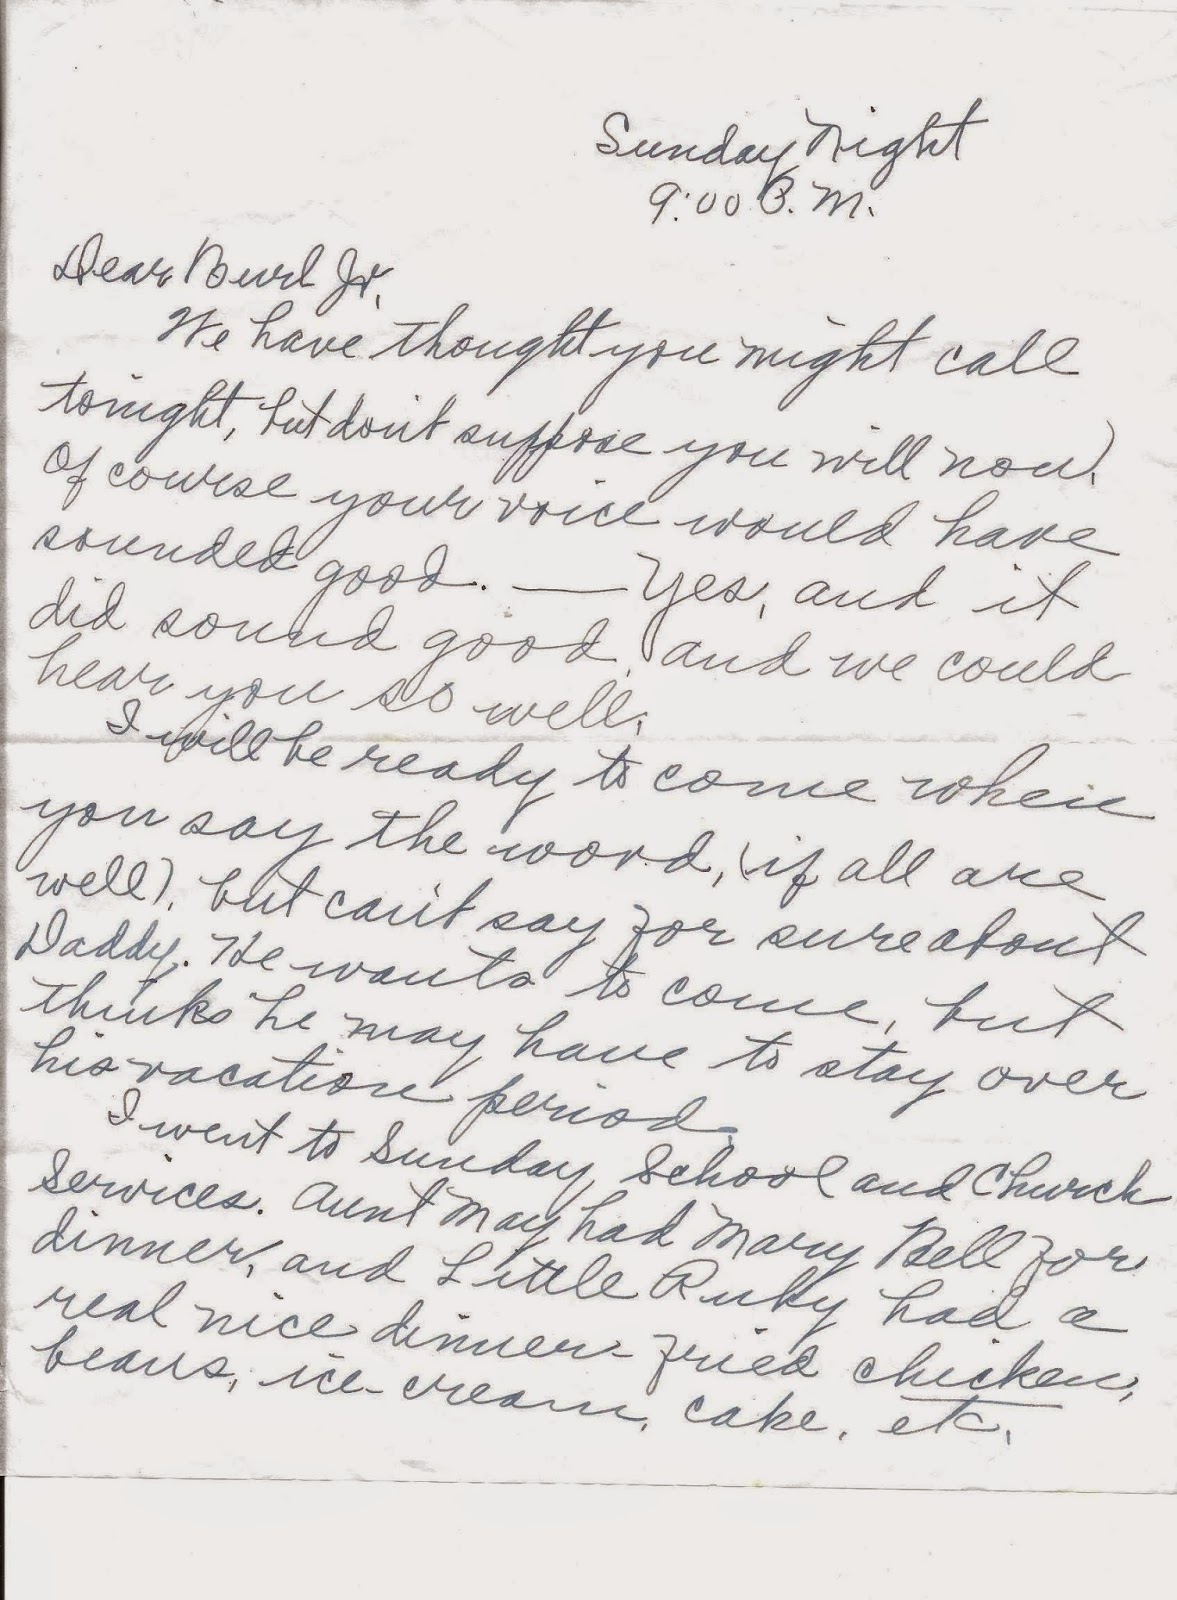 Sunday Night
9:00 P.M.
Dear Burl Jr,
We have thought you might call
tonight, but don't suppose you will now.
Of course your voice would have
sounded good. — Yes, and it
did sound good, and we could
hear you so well.
I will be ready to come when
you say the word, (if all are
well), but can't say for sure about
Daddy. He wants to come, but
thinks he may have to stay over
his vacation period.
I went to Sunday School and Church
Services. Aunt May had Mary Bell for
dinner, and Little Ruby had a
real nice dinner - fried chicken,
beans, ice-cream, cake, etc.